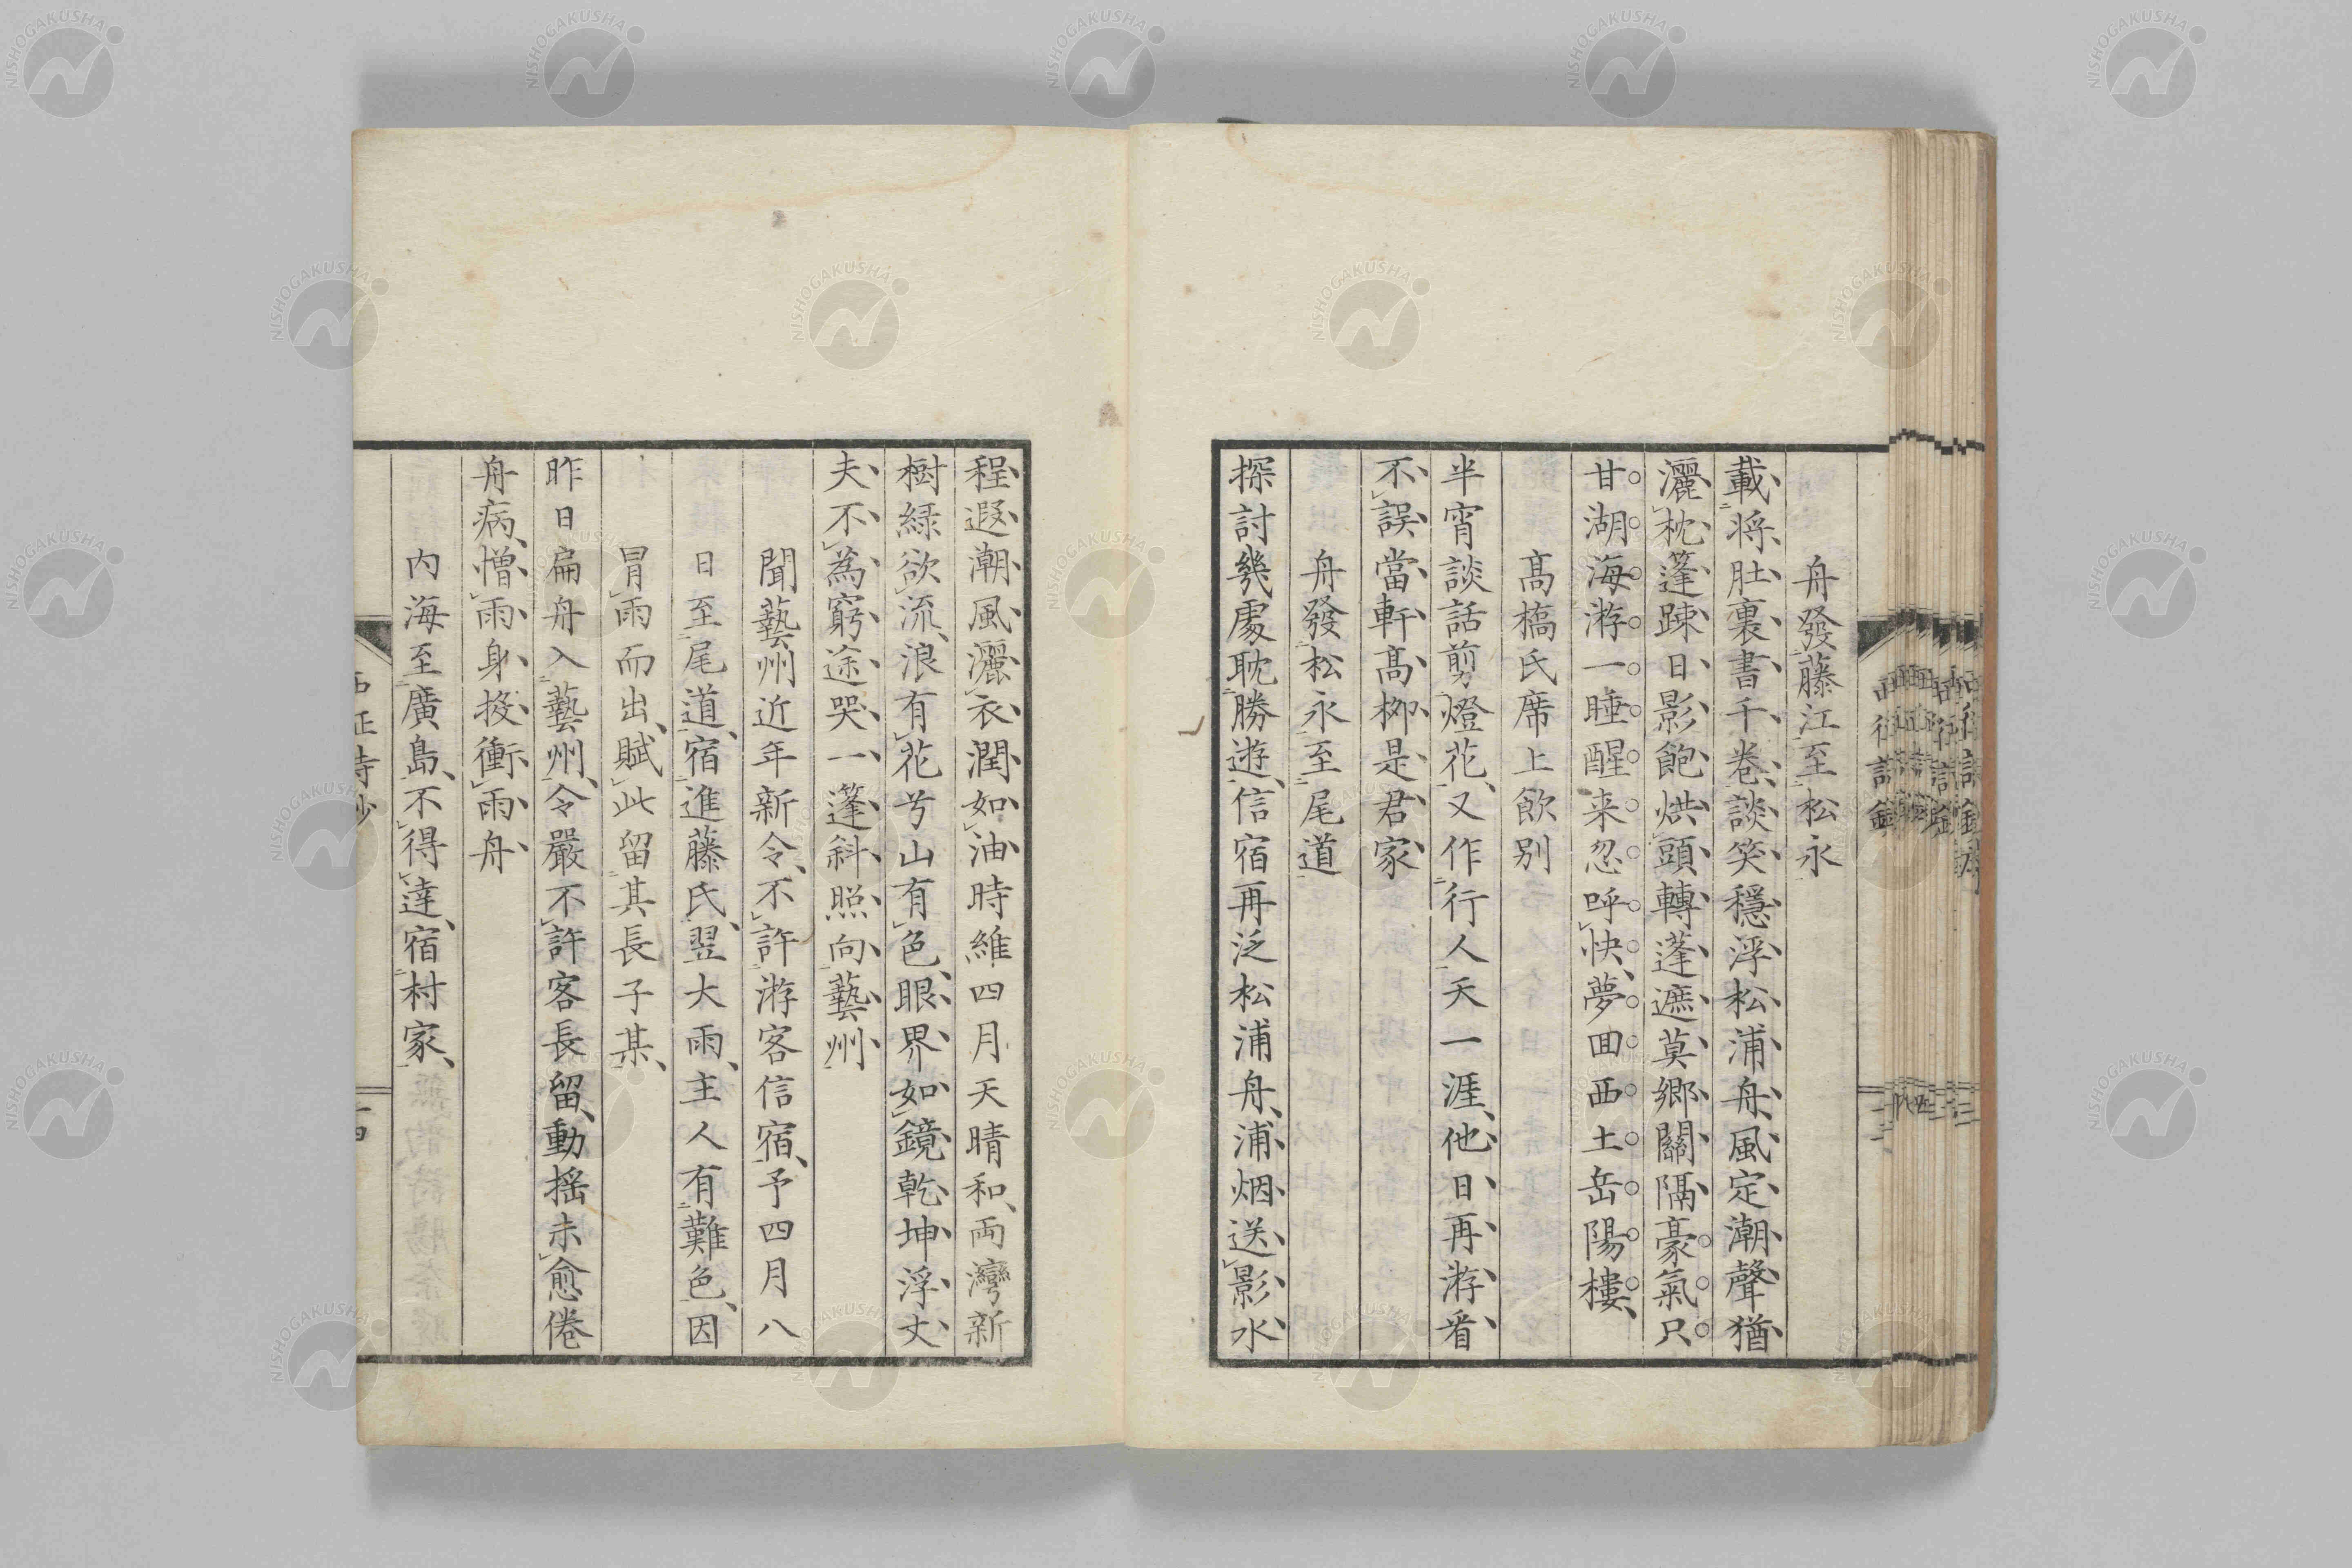 舟發藤江至松永
載將肚裏書千卷、談笑穩浮松浦舟、風定潮聲猶
灑枕篷疎日影飽烘頭轉蓬遮莫鄉關隔豪氣只
甘湖海游一睡醒来忽呼快、夢囬西土岳陽樓、
髙橋氏席上飲別
半宵談話剪燈花、又作行人天一涯、他日再游看
不誤當軒髙柳是君家
舟發松永至尾道
探討幾處耽勝遊、信宿再泛松浦舟、浦烟送影水
程遐潮風灑衣潤如油時維四月天晴和、両灣新
樹緑欲流、浪有花兮山有色、眼界如鏡乾坤浮丈
夫不為窮途哭一篷斜照向藝州
聞藝州近年新令、不許游客信宿、予四月八
日至尾道、宿進藤氏、翌大雨、主人有難色、因
冒雨而出、賦此留其長子某、
昨日扁舟入藝州、令嚴不許客長留、動揺未愈倦
舟病、憎雨身投衝雨舟
内海至廣島、不得達、宿村家、
西征詩鈔
NISHOGAKUSHA